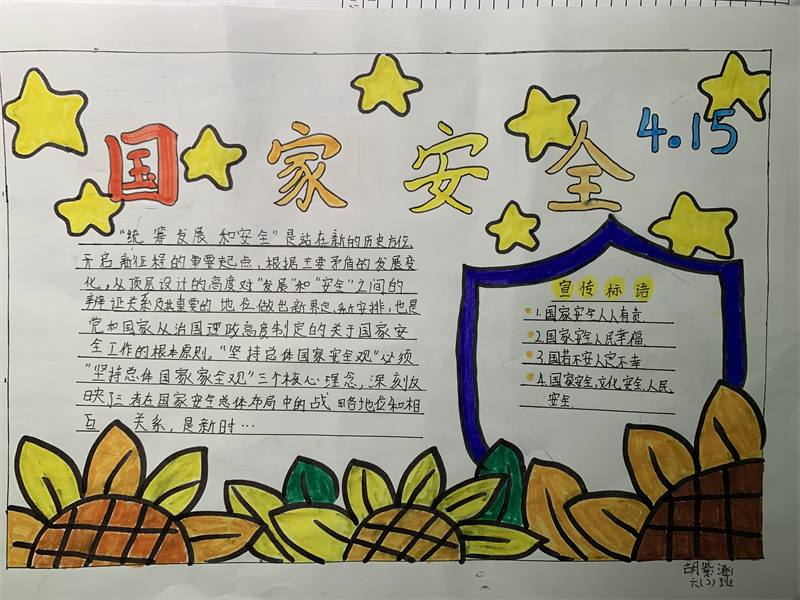 国家安全
4.15
“统筹发展和安全”是站在新的历史方位
开启新征程的重要起点,根据主要矛盾的发展变
化,从顶层设计的高度对“发展”和“安全”之间的
辩证关系及其重要的地位做出新界定、新安排,也是
党和国家从治国理政高度制定的关于国家安
全工作的根本原则。“坚持总体国家安全观”必须
“坚持总体国家家全观”三个核心理念,深刻反
映了三者在国家安全总体布局中的战略地位和相
互关系,是新时…
宣传标语
1.国家安全人人有责
2.国家安全人民幸福
3.国若不安人定不幸
4.国家安全,文化安全,人民
安全.
胡紫
六(2)班